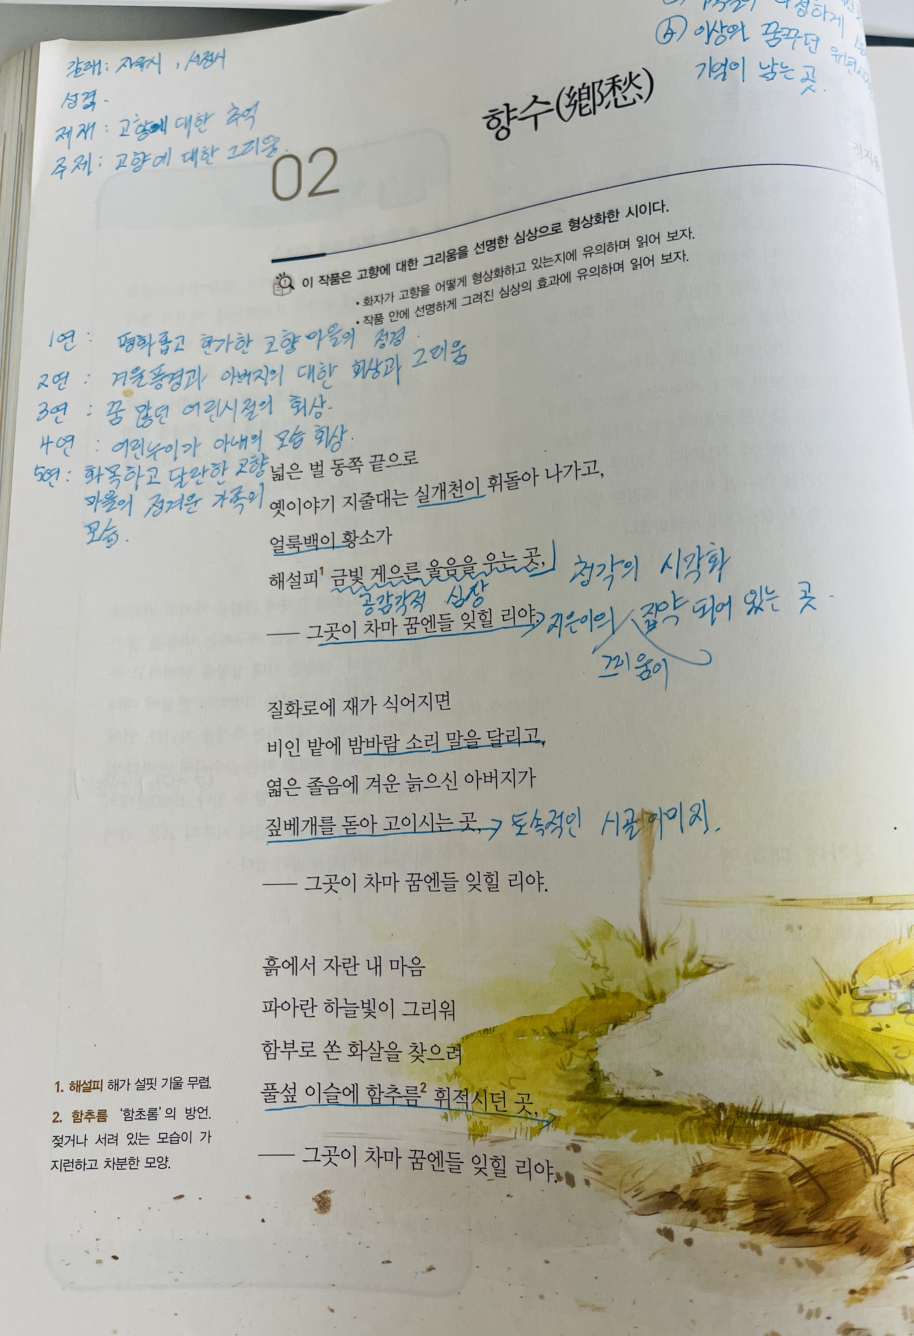 갈래: 자유시, 서정시
성격.
제재: 고향에 대한 추억
주제: 고향에 대한 그리움.
④ 이상와 꿈꾸던 유년시
기억이 남는 곳.
향수(鄕愁)
02
정지용
이 작품은 고향에 대한 그리움을 선명한 심상으로 형상화한 시이다.
• 화자가 고향을 어떻게 형상화하고 있는지에 유의하며 읽어 보자.
• 작품 안에 선명하게 그려진 심상의 효과에 유의하며 읽어 보자.
1연: 평화롭고 한가한 고향 마을의 정경
2연: 겨울풍경과 아버지의 대한 회상과 그리움
3연: 꿈 많던 어린시절의 회상.
4연: 어린누이가 아내의 모습 회상.
5연: 화목하고 단란한 고향
마을의 정겨운 가족의
모습.
넓은 벌 동쪽 끝으로
옛이야기 지줄대는 실개천이 휘돌아 나가고,
얼룩백이 황소가
해설피1 금빛 게으른 울음을 우는 곳,
청각의 시각화
공감각적 심상
── 그곳이 차마 꿈엔들 잊힐 리야.
지은이의 집약 되어 있는 곳.
그리움이
질화로에 재가 식어지면
비인 밭에 밤바람 소리 말을 달리고,
엷은 졸음에 겨운 늙으신 아버지가
짚베개를 돋아 고이시는 곳, → 토속적인 시골이미지.
── 그곳이 차마 꿈엔들 잊힐 리야.
흙에서 자란 내 마음
파아란 하늘빛이 그리워
함부로 쏜 화살을 찾으려
풀섶 이슬에 함추름2 휘적시던 곳,
── 그곳이 차마 꿈엔들 잊힐 리야.
1. 해설피 해가 설핏 기울 무렵.
2. 함추름 ‘함초롬’의 방언.
젖거나 서려 있는 모습이 가
지런하고 차분한 모양.